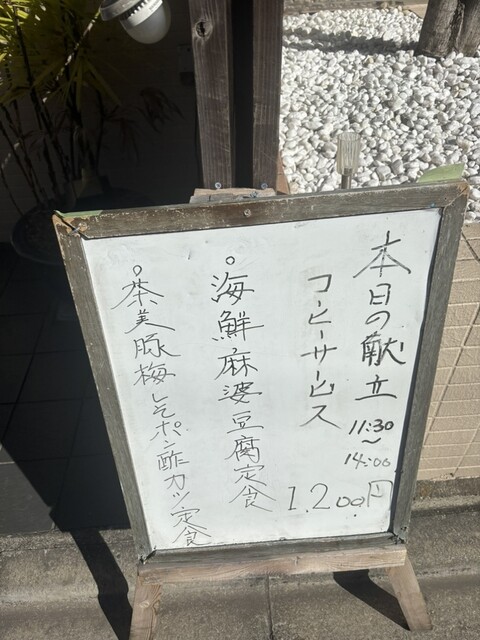 本日の献立 11:30〜14:00
コーヒーサービス 1,200円
。海鮮麻婆豆腐定食
。茶美豚梅しそポン酢カツ定食